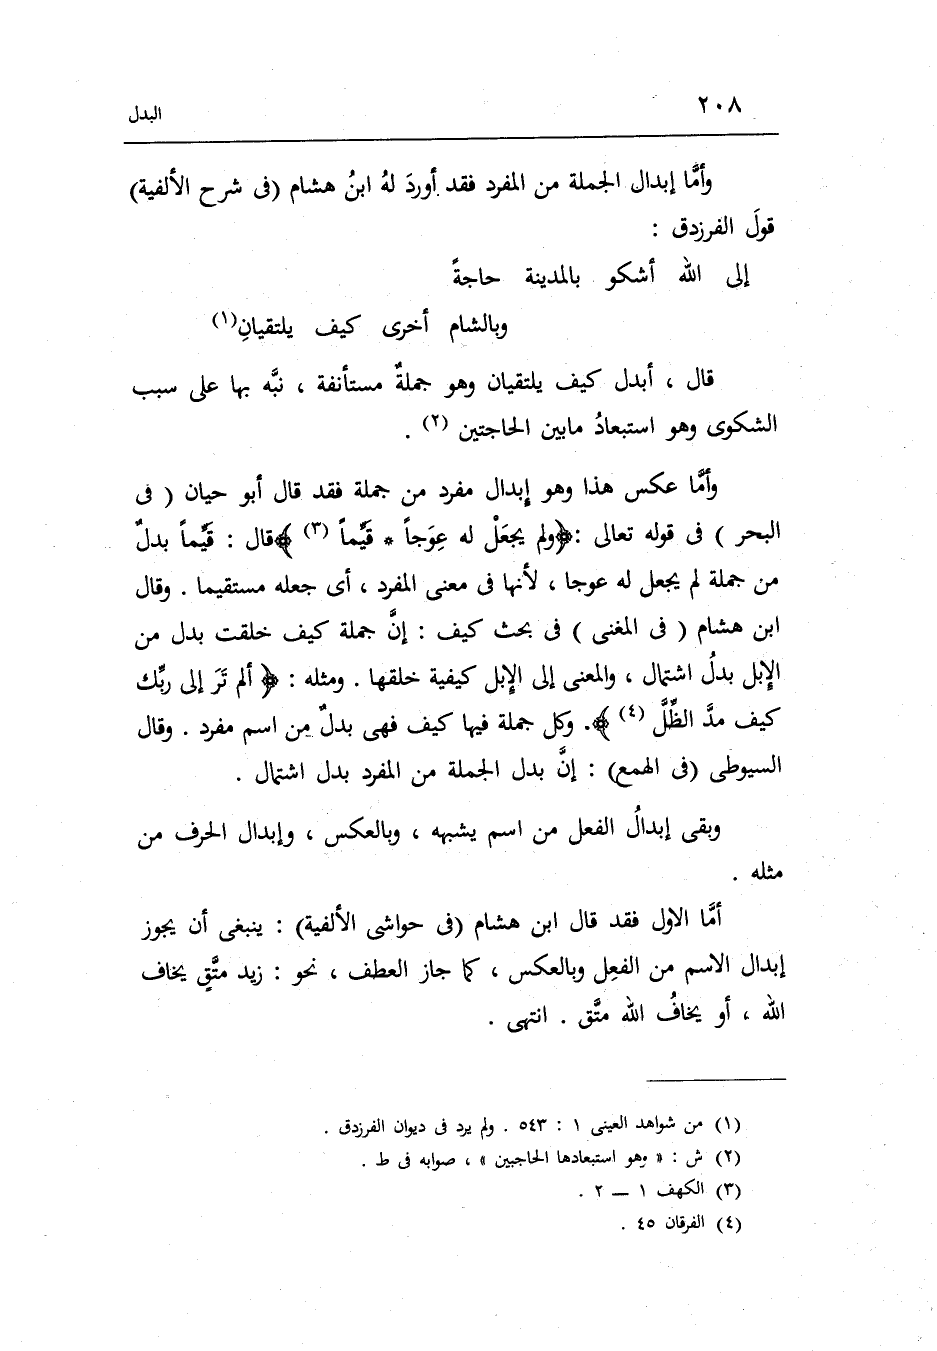 ٢٠٨
البدل
وأمَّا إبدال الجملة من المفرد فقد أوردَ لهُ ابنُ هشام (فى شرح الألفية)
قولَ الفرزدق :
إلى الله أشكو بالمدينة حاجةً
وبالشام أخرى كيف يلتقيانِ(١)
قال ، أبدل كيف يلتقيان وهو جملةٌ مستأنفة ، نبَّه بها على سبب
الشكوى وهو استبعادُ مابين الحاجتين (٢) .
وأمَّا عكس هذا وهو إبدال مفرد من جملة فقد قال أبو حيان ( فى
البحر ) فى قوله تعالى :﴿ولم يجعَلْ له عِوَجاً * قَيِّماً (٣) ﴾قال : قَيِّماً بدلٌ
من جملة لم يجعل له عوجا ، لأنها فى معنى المفرد ، أى جعله مستقيما . وقال
ابن هشام ( فى المغنى ) فى بحث كيف : إنَّ جملة كيف خلقت بدل من
الإبل بدلُ اشتمال ، والمعنى إلى الإبل كيفية خلقها . ومثله : ﴿ ألم تَرَ إلى ربِّك
كيف مدَّ الظِّلَّ (٤) ﴾. وكل جملة فيها كيف فهى بدلٌ من اسم مفرد . وقال
السيوطى (فى الهمع) : إنَّ بدل الجملة من المفرد بدل اشتمال .
وبقى إبدالُ الفعل من اسم يشبهه ، وبالعكس ، وإبدال الحرف من
مثله .
أمَّا الاول فقد قال ابن هشام (فى حواشى الألفية) : ينبغى أن يجوز
إبدال الاسم من الفعِل وبالعكس ، كما جاز العطف ، نحو : زيد متَّقٍ يخاف
الله ، أو يخافُ الله متَّق . انتهى .
(١) من شواهد العينى ١ : ٥٤٣ . ولم يرد فى ديوان الفرزدق .
(٢) ش : « وهو استبعادها الحاجبين » ، صوابه فى ط .
(٣) الكهف ١ — ٢ .
(٤) الفرقان ٤٥ .